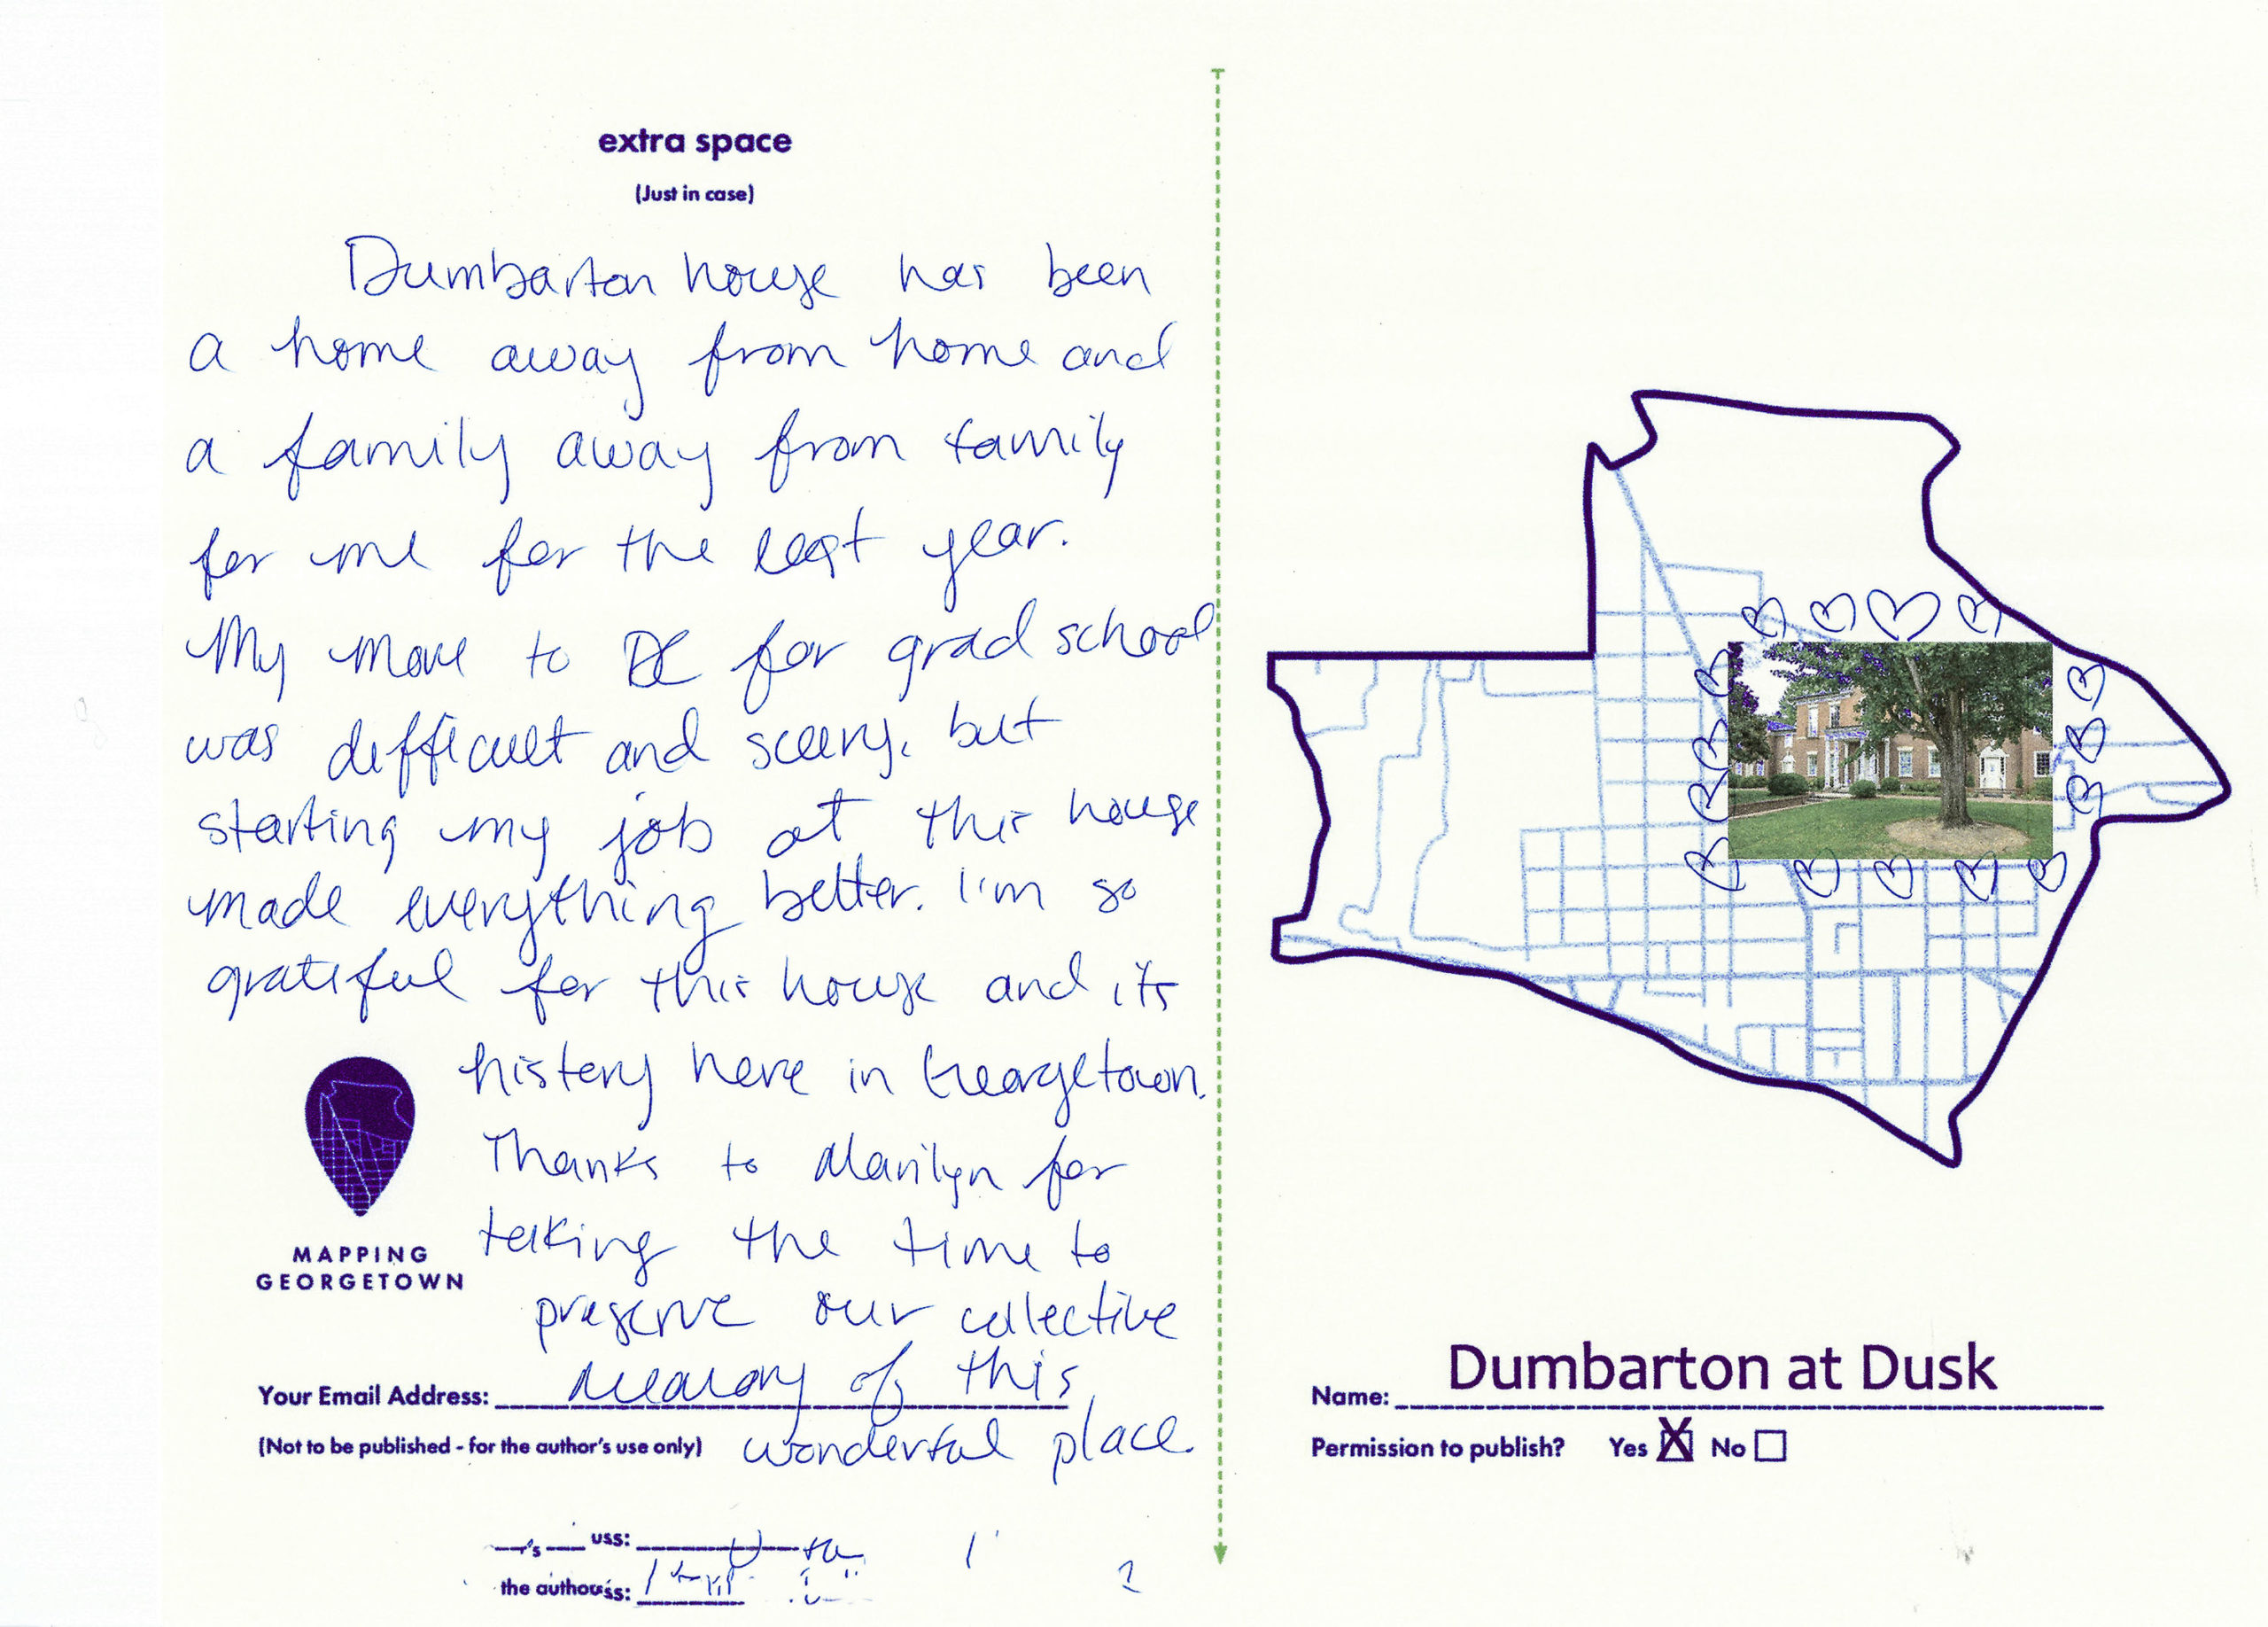 extra space
(Just in case)
Dumbarton house has been
a home away from home and
a family away from family
for me for the last year.
My move to DC for grad school
was difficult and scary, but
starting my job at this house
made everything better. I'm so
grateful for this house and its
history here in Georgetown.
Thanks to Marilyn for
taking the time to
preserve our collective
memory of this
wonderful place.
MAPPING
GEORGETOWN
Your Email Address:
(Not to be published - for the author's use only)
uss:
the authouss:
Dumbarton at Dusk
Name:
Permission to publish? Yes X No